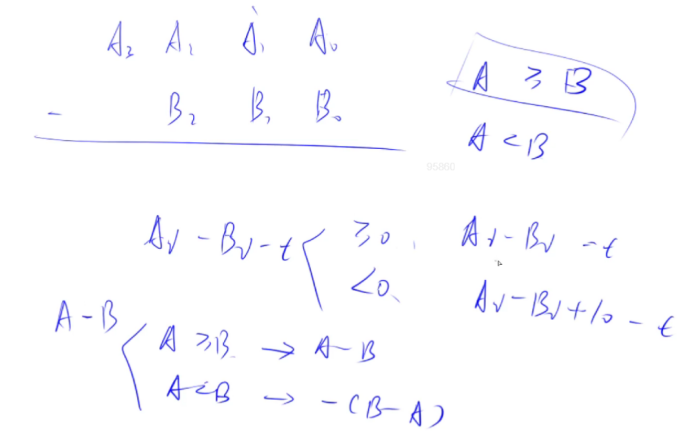 A₃ A₂ A₁ A₀
- B₂ B₁ B₀
A ≥ B
A < B
95860
Aᵢ - Bᵢ - t { ≥0, Aᵢ - Bᵢ - t
<0, Aᵢ - Bᵢ + 10 - t
A - B { A ≥ B → A - B
A < B → -(B - A)